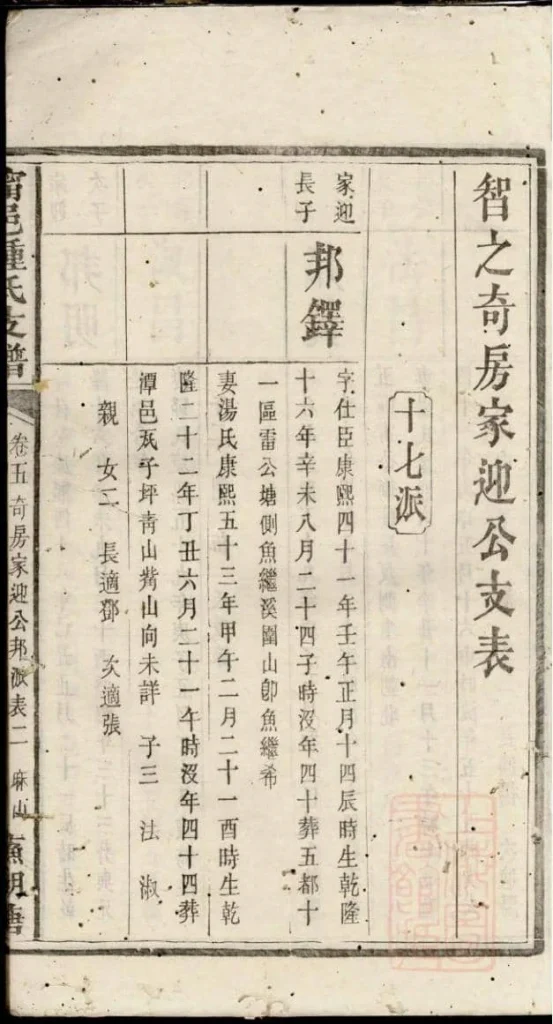 智之奇房家迎公支表
十七派
家迎
長子
邦鐸
字仕臣康熙四十一年壬午正月十四辰時生乾隆
十六年辛未八月二十四子時沒年四十葬五都十
一區雷公塘側魚繼溪圍山卽魚繼希
妻湯氏康熙五十三年甲午二月二十一酉時生乾
隆二十二年丁丑六月二十一午時沒年四十四葬
潭邑瓦子坪青山觜山向未詳 子三 法 淑
親 女二 長適鄧 次適張
甯邑鍾氏支譜
卷五奇房家迎公邦派表二 麻山